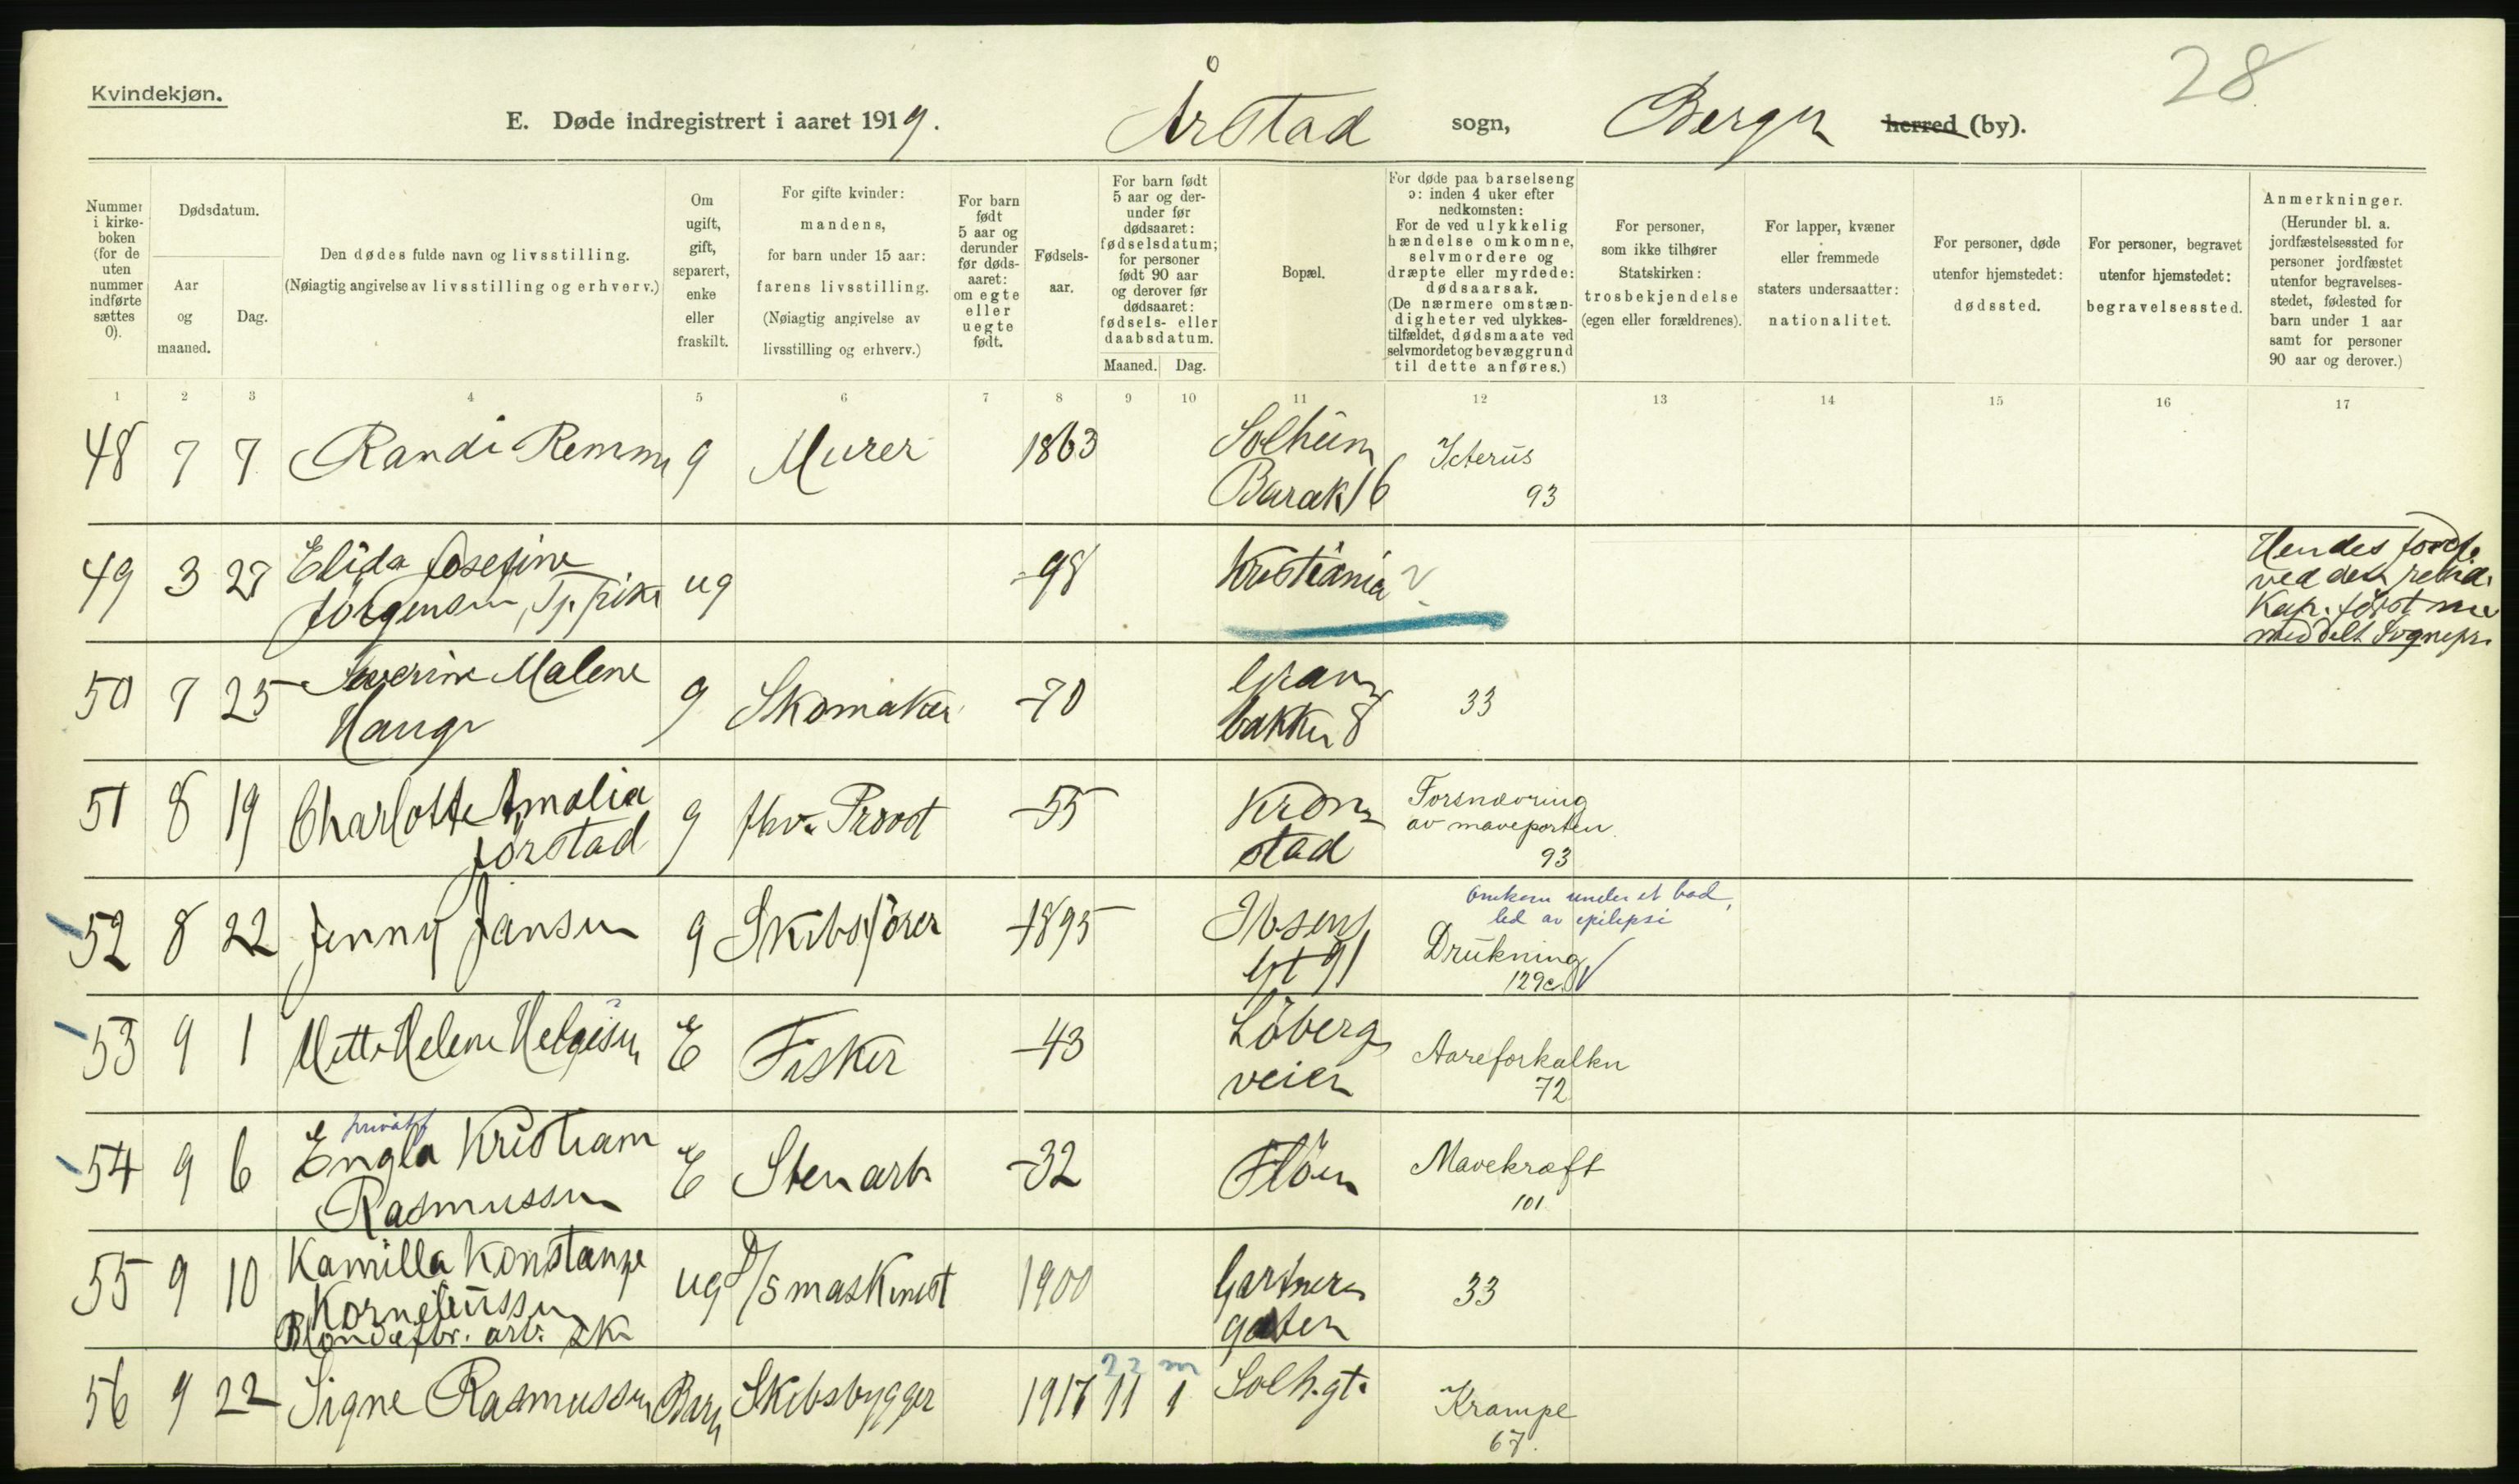 28
Kvindekjøn.
E. Døde indregistrert i aaret 1919. Årstad sogn, Bergen herred (by).
Nummer i kirkeboken (for de uten nummer indførte sættes 0).
Dødsdatum.
Aar og maaned.
Dag.
Den dødes fulde navn og livsstilling.
(Nøiagtig angivelse av livsstilling og erhverv.)
Om ugift, gift, separert, enke eller fraskilt.
For gifte kvinder: mandens, for barn under 15 aar: farens livsstilling. (Nøiagtig angivelse av livsstilling og erhverv.)
For barn født 5 aar og derunder før dødsaaret: om egte eller uegte født.
Fødselsaar.
For barn født 5 aar og derunder før dødsaaret: fødselsdatum; for personer født 90 aar og derover før dødsaaret: fødsels- eller daabsdatum.
Maaned. Dag.
Bopæl.
For døde paa barselseng ɔ: inden 4 uker efter nedkomsten: For de ved ulykkelig hændelse omkomne, selvmordere og dræpte eller myrdede: dødsaarsak. (De nærmere omstændigheter ved ulykkestilfældet, dødsmaate ved selvmordet og bevæggrund til dette anføres.)
For personer, som ikke tilhører Statskirken: trosbekjendelse (egen eller forældrenes).
For lapper, kvæner eller fremmede staters undersaatter: nationalitet.
For personer, døde utenfor hjemstedet: dødssted.
For personer, begravet utenfor hjemstedet: begravelsessted.
Anmerkninger.
(Herunder bl. a. jordfæstelsessted for personer jordfæstet utenfor begravelsesstedet, fødested for barn under 1 aar samt for personer 90 aar og derover.)
1 2 3 4 5 6 7 8 9 10 11 12 13 14 15 16 17
48 7 7 Randi Remme g Murer 1863 Solheim Barak 16 Icterus 93
49 3 27 Elida Josefine Jörgensen, Tj. pike ug -98 Kristiania
Hendes
ved den
Kap. først nu
meddelt Sognepr.
50 7 25 Severine Malene Hauge g Skomaker -70 Gran bakken 8 33
51 8 19 Charlotte Amalia Jörstad g fhv. Provst -55 Kron stad Forsnævring av maveporten 93
52 8 22 Jenny Jansen g Skibsförer -1895 Ibsens gt 91 Omkom under et bad, led av epilepsi Drukning 129c
53 9 1 Mette Helene Helgesen E Fisker -43 Löbergs veien Aareforkalkn 72
54 9 6 privat Engla Kristiane Rasmussen E Stenarb. -32 Flöen Mavekræft 101
55 9 10 Kamilla Konstanse Korneliussen Blondefbr. arb. ug D/S maskinist 1900 Gartner gaten 33
56 9 22 Signe Rasmussen Barn Skibsbygger 1917 11 1 22 m Solh.gt. Krampe 67.